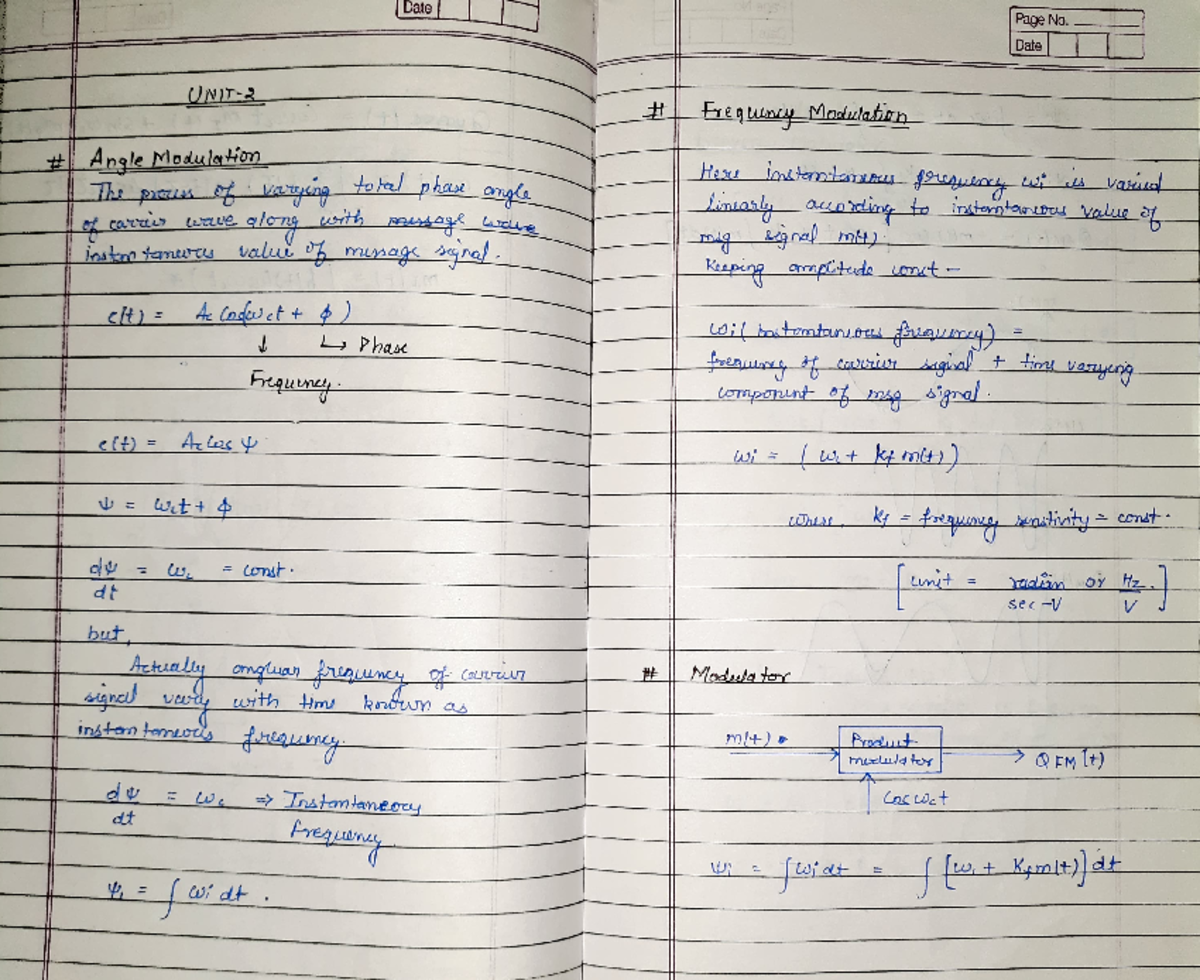 Date
UNIT-2
# Angle Modulation
The process of varying total phase angle
of carrier wave along with message wave
instantaneous value of message signal.
c(t) = Ac Cos(ωct + ϕ)
↓ ↳ Phase
Frequency.
c(t) = Ac Cos ψ
ψ = ωct + ϕ
dψ/dt = ωc = const.
but,
Actually angluar frequency of carrier
signal vary with time known as
instantaneous frequency.
dψ/dt = ωc ⇒ Instantaneous
frequency
ψi = ∫ ωi dt .
Page No.
Date
# Frequency Modulation
Here instantaneous frequency wi is varied
linearly according to instantaneous value of
msg signal m(t).
Keeping amplitude const –
ωi( Instantaneous frequency) =
frequency of carrier signal + time varying
component of msg signal.
ωi = ( ωc + kf m(t) )
where, kf = frequency sensitivity = const.
[ unit = radian/sec-V or Hz/V ]
# Modulator
m(t) → Product → QFM(t)
modulator
↑ Cos ωct
ψi = ∫ ωi dt = ∫ [ωc + Kf m(t)] dt